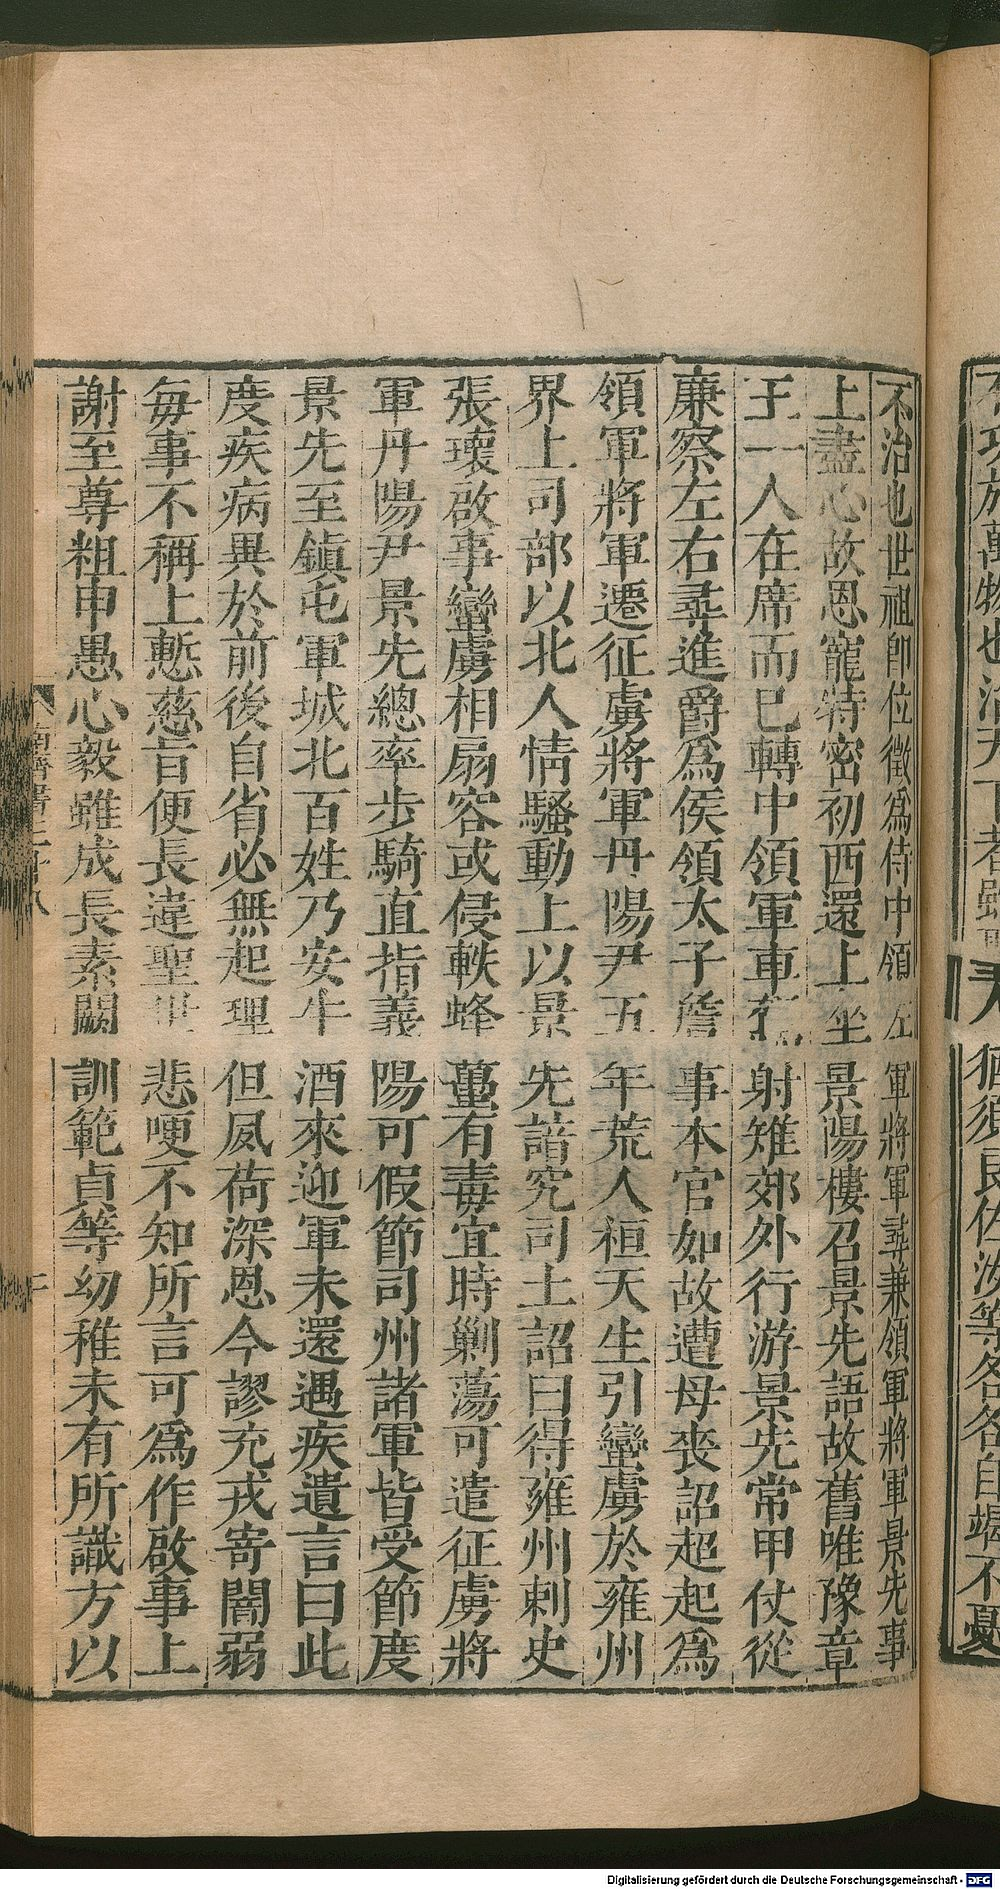 不治也世祖卽位徵爲侍中領左軍將軍尋兼領軍將軍景先事
上盡心故恩寵特密初西還上坐景陽樓召景先語故舊唯豫章
王一人在席而已轉中領軍車駕射雉郊外行游景先常甲仗從
廉察左右尋進爵爲侯領太子詹事本官如故遭母喪詔超起爲
領軍將軍遷征虜將軍丹陽尹五年荒人桓天生引蠻虜於雍州
界上司部以北人情騷動上以景先諳究司土詔曰得雍州刺史
張瓌啟事蠻虜相扇容或侵軼蜂蠆有毒宜時剿蕩可遣征虜將
軍丹陽尹景先總率步騎直指義陽可假節司州諸軍皆受節度
景先至鎮屯軍城北百姓乃安牛酒來迎軍未還遇疾遺言曰此
度疾病異於前後自省必無起理但夙荷深恩今謬充戎寄闇弱
每事不稱上慙慈旨便長違聖世悲哽不知所言可爲作啟事上
謝至尊粗申愚心毅雖成長素闕訓範貞等幼稚未有所識方以
南齊書三十八
二
有功於萬物也治天下者雖聖人猶須良佐汝等各各自竭不憂
Digitalisierung gefördert durch die Deutsche Forschungsgemeinschaft - DFG